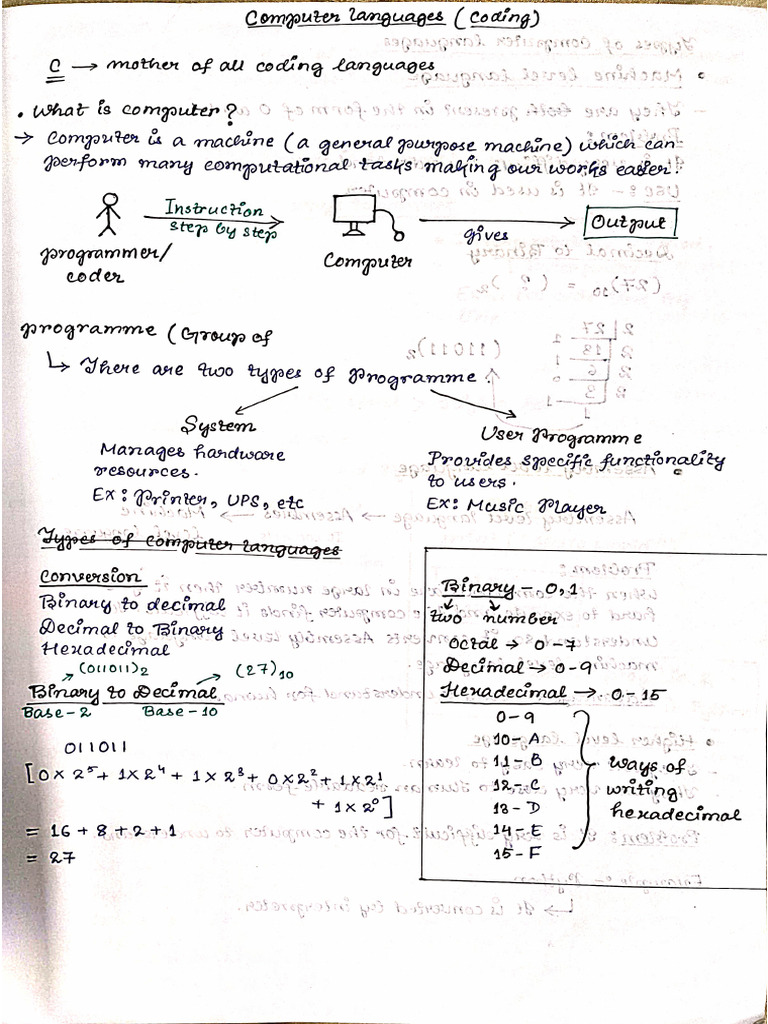 Computer languages (coding)
C → mother of all coding languages
• What is computer?
→ Computer is a machine (a general purpose machine) which can
perform many computational tasks making our works easier.
Instruction
step by step
programmer/
coder
Computer
gives
Output
programme (Group of
↳ There are two types of programme.
System
Manages hardware
resources.
Ex: Printer, UPS, etc
User Programme
Provides specific functionality
to users.
Ex: Music Player
Types of computer languages
Conversion
Binary to decimal
Decimal to Binary
Hexadecimal
(011011)2 (27)10
Binary to Decimal
Base-2 Base-10
011011
[0×2⁵+ 1×2⁴ + 1×2³+ 0×2²+ 1×2¹
+ 1×2⁰]
= 16 + 8 + 2 + 1
= 27
Binary – 0,1
two number
Octal → 0-7
Decimal → 0-9
Hexadecimal → 0-15
0-9
10-A
11-B
12-C
13-D
14-E
15-F
ways of
writing
hexadecimal